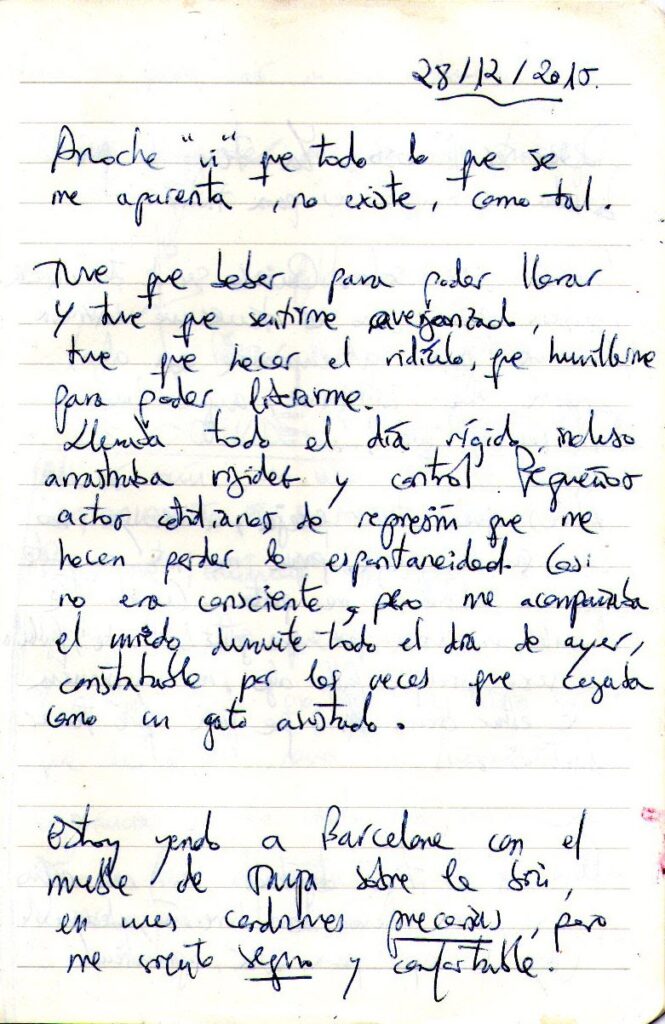 28/12/2015.
Anoche "vi" que todo lo que se
me aparenta, no existe, como tal.
Tuve que beber para poder llorar
y tuve que sentirme avergonzado,
tuve que hacer el ridículo, que humillarme
para poder librarme.
Llevaba todo el día rígido, incluso
arrastraba rigidez y control. Pequeños
actos cotidianos de represión que me
hacen perder la espontaneidad. Casi
no era consciente, pero me acompañaba
el miedo durante todo el día de ayer,
constatable por las veces que cagaba
como un gato asustado.
Estoy yendo a Barcelona con el
mueble de sobre la
en unas condiciones precarias, pero
me siento seguro y confortable.